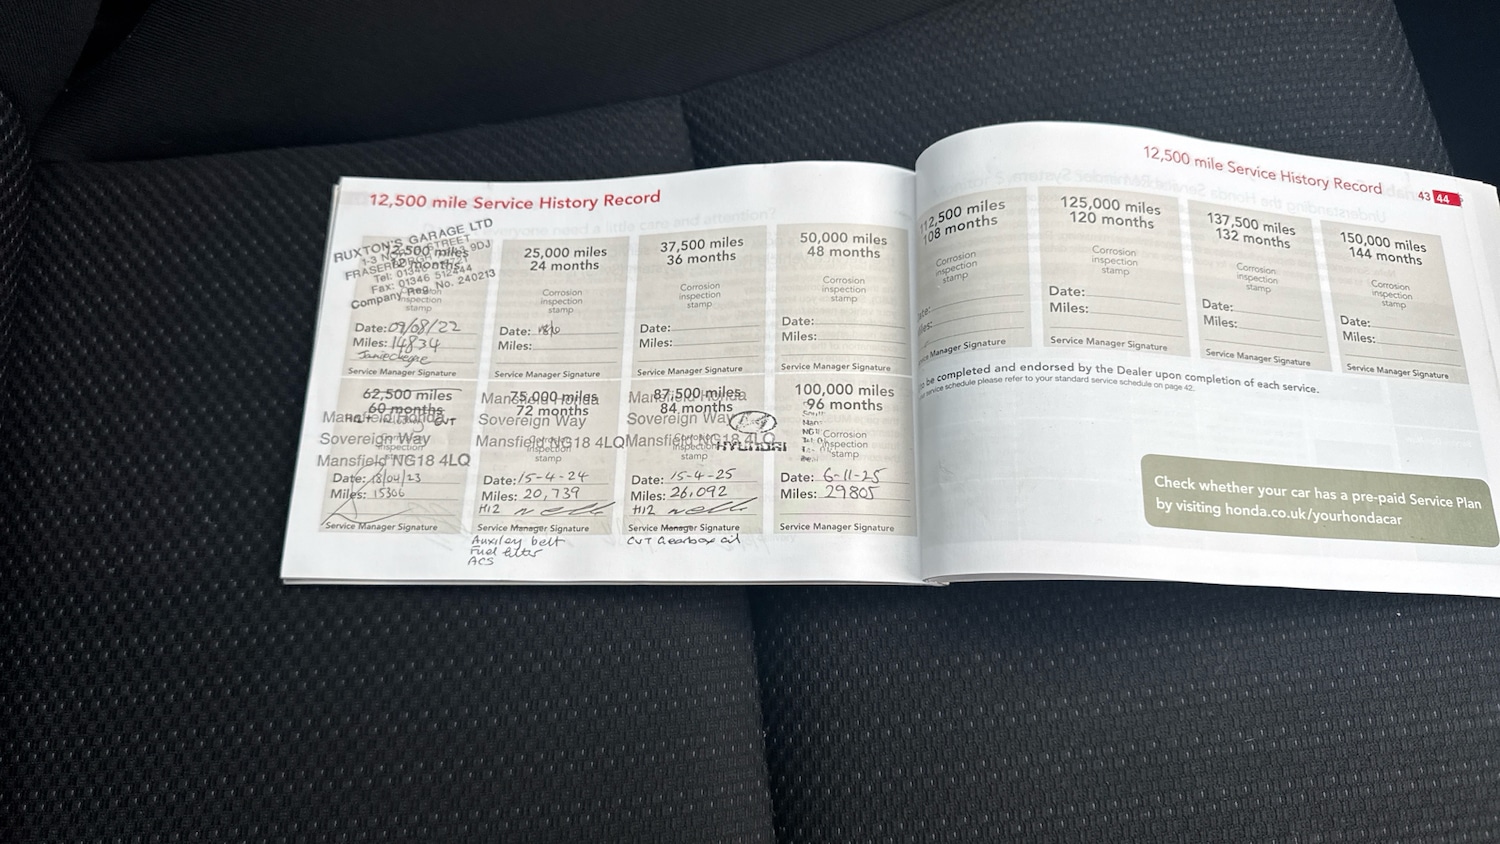 12,500 mile Service History Record
RUXTON'S GARAGE LTD
Company Reg. No. 240213
Date: 09/08/22
Miles: 14834
Service Manager Signature
25,000 miles
24 months
Corrosion
inspection
stamp
Date:
Miles:
Service Manager Signature
37,500 miles
36 months
Corrosion
inspection
stamp
Date:
Miles:
Service Manager Signature
50,000 miles
48 months
Corrosion
inspection
stamp
Date:
Miles:
Service Manager Signature
62,500 miles
60 months
Mansfield Honda
Sovereign Way
Mansfield NG18 4LQ
Date: 18/04/23
Miles: 15306
Service Manager Signature
75,000 miles
Mansfield Honda
72 months
Sovereign Way
Mansfield NG18 4LQ
inspection
stamp
Date: 15-4-24
Miles: 20,739
H12
Service Manager Signature
Auxiley belt
Fuel filter
ACS
87,500 miles
Mansfield Honda
84 months
Sovereign Way
Mansfield NG18 4LQ
HYUNDAI
inspection
stamp
Date: 15-4-25
Miles: 26,092
H12
Service Manager Signature
CVT Gearbox oil
100,000 miles
96 months
Corrosion
inspection
stamp
Date: 6-11-25
Miles: 29805
Service Manager Signature
12,500 mile Service History Record 43 44
112,500 miles
108 months
Corrosion
inspection
stamp
Manager Signature
125,000 miles
120 months
Corrosion
inspection
stamp
Date:
Miles:
Service Manager Signature
137,500 miles
132 months
Corrosion
inspection
stamp
Date:
Miles:
Service Manager Signature
150,000 miles
144 months
Corrosion
inspection
stamp
Date:
Miles:
Service Manager Signature
be completed and endorsed by the Dealer upon completion of each service.
service schedule please refer to your standard service schedule on page 42.
Check whether your car has a pre-paid Service Plan
by visiting honda.co.uk/yourhondacar